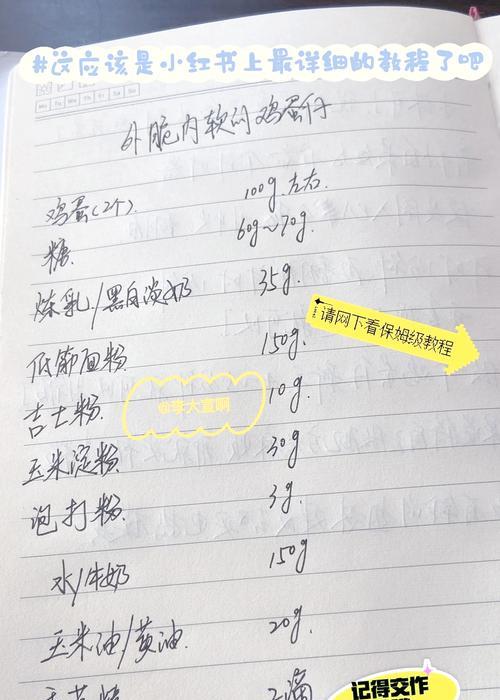 #这应该是小红书上最详细的教程了吧
外脆内软的鸡蛋仔
鸡蛋(2个). 100g.左右.
糖. 60g~70g.
炼乳/黑白淡奶 35g.
请网下看保姆级教程
低筋面粉 150g.
吉士粉. 10g.
@李大宣啊
玉米淀粉. 30g
泡打粉. 3g.
水/牛奶 150g
玉米油/黄油. 20g.
2滴
记得交作